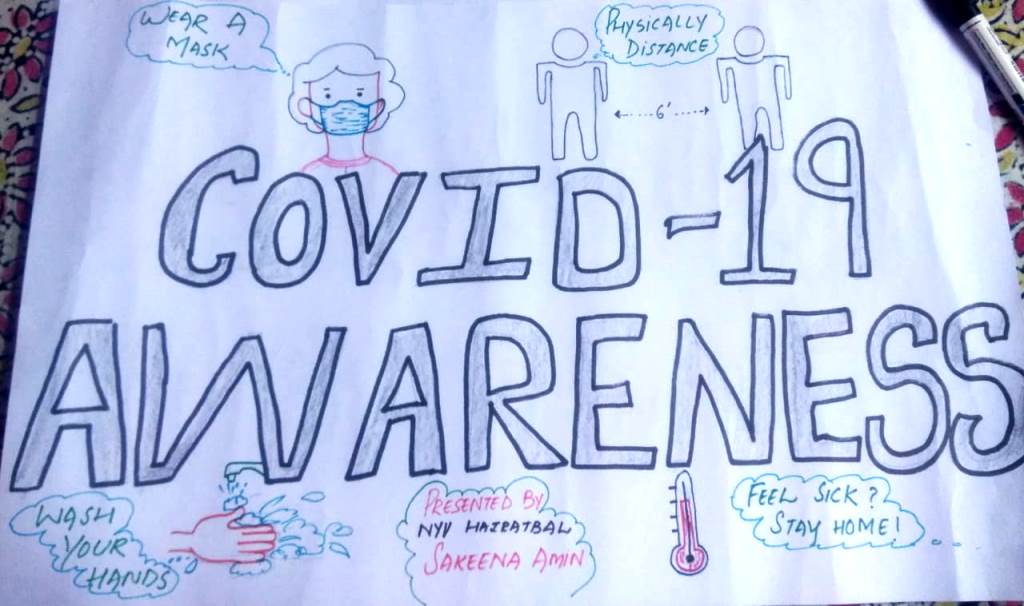 WEAR A
MASK
PHYSICALLY
DISTANCE
6'
COVID-19
AWARENESS
WASH
YOUR
HANDS
PRESENTED BY
NYV HAZRATBAL
SAKEENA AMIN
FEEL SICK?
STAY HOME!